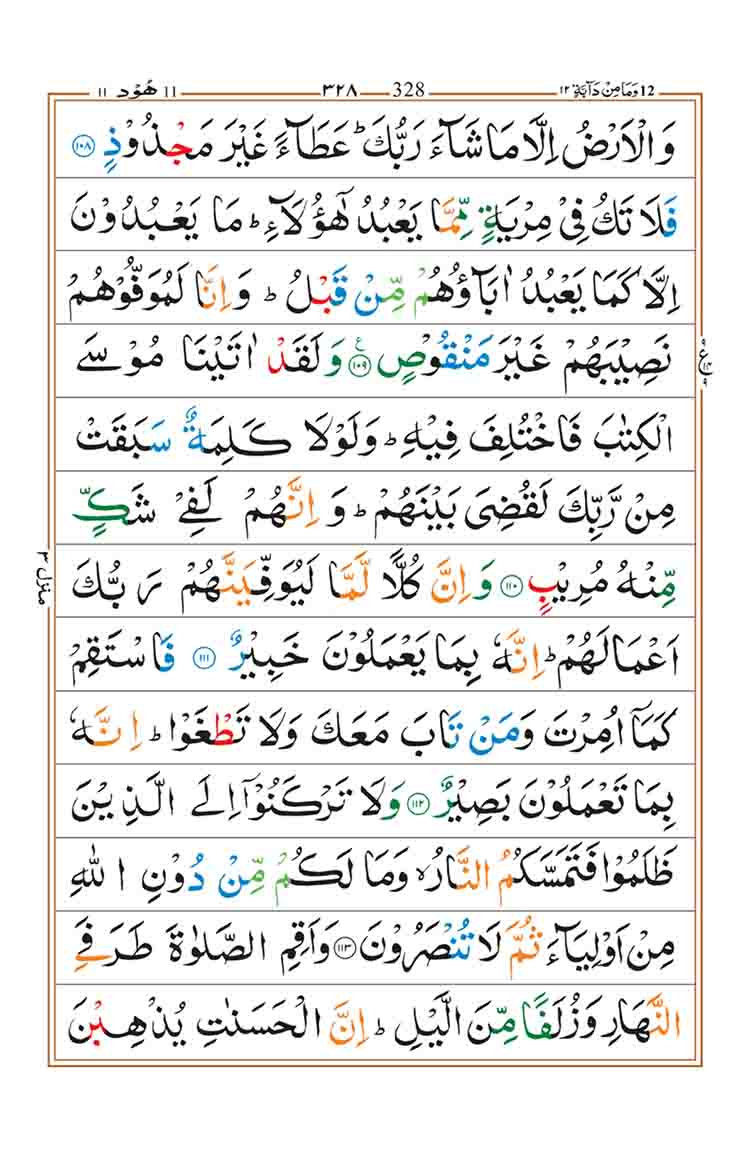 12 وَمَا مِنْ دَآبَّةٍ ١٢ 328 ٣٢٨ 11 هُوْد ١١
وَالْاَرْضُ اِلَّا مَا شَآءَ رَبُّكَ ؕ عَطَآءً غَيْرَ مَجْذُوْذٍ ١٠٨
فَلَا تَكُ فِىْ مِرْيَةٍ مِّمَّا يَعْبُدُ هٰٓؤُلَآءِ ؕ مَا يَعْبُدُوْنَ
اِلَّا كَمَا يَعْبُدُ اٰبَآؤُهُمْ مِّنْ قَبْلُ ؕ وَاِنَّا لَمُوَفُّوْهُمْ
نَصِيْبَهُمْ غَيْرَ مَنْقُوْصٍ ١٠٩ ع وَلَقَدْ اٰتَيْنَا مُوْسَى
ع ٩ ٩
الْكِتٰبَ فَاخْتُلِفَ فِيْهِ ؕ وَلَوْلَا كَلِمَةٌ سَبَقَتْ
مِنْ رَّبِّكَ لَقُضِىَ بَيْنَهُمْ ؕ وَاِنَّهُمْ لَفِىْ شَكٍّ
مِّنْهُ مُرِيْبٍ ١١٠ وَاِنَّ كُلًّا لَّمَّا لَيُوَفِّيَنَّهُمْ رَبُّكَ
منزل ٣
اَعْمَالَهُمْ ؕ اِنَّهٗ بِمَا يَعْمَلُوْنَ خَبِيْرٌ ١١١ فَاسْتَقِمْ
كَمَآ اُمِرْتَ وَمَنْ تَابَ مَعَكَ وَلَا تَطْغَوْا ؕ اِنَّهٗ
بِمَا تَعْمَلُوْنَ بَصِيْرٌ ١١٢ وَلَا تَرْكَنُوْٓا اِلَى الَّذِيْنَ
ظَلَمُوْا فَتَمَسَّكُمُ النَّارُ ۙ وَمَا لَكُمْ مِّنْ دُوْنِ اللّٰهِ
مِنْ اَوْلِيَآءَ ثُمَّ لَا تُنْصَرُوْنَ ١١٣ وَاَقِمِ الصَّلٰوةَ طَرَفَىِ
النَّهَارِ وَزُلَفًا مِّنَ الَّيْلِ ؕ اِنَّ الْحَسَنٰتِ يُذْهِبْنَ